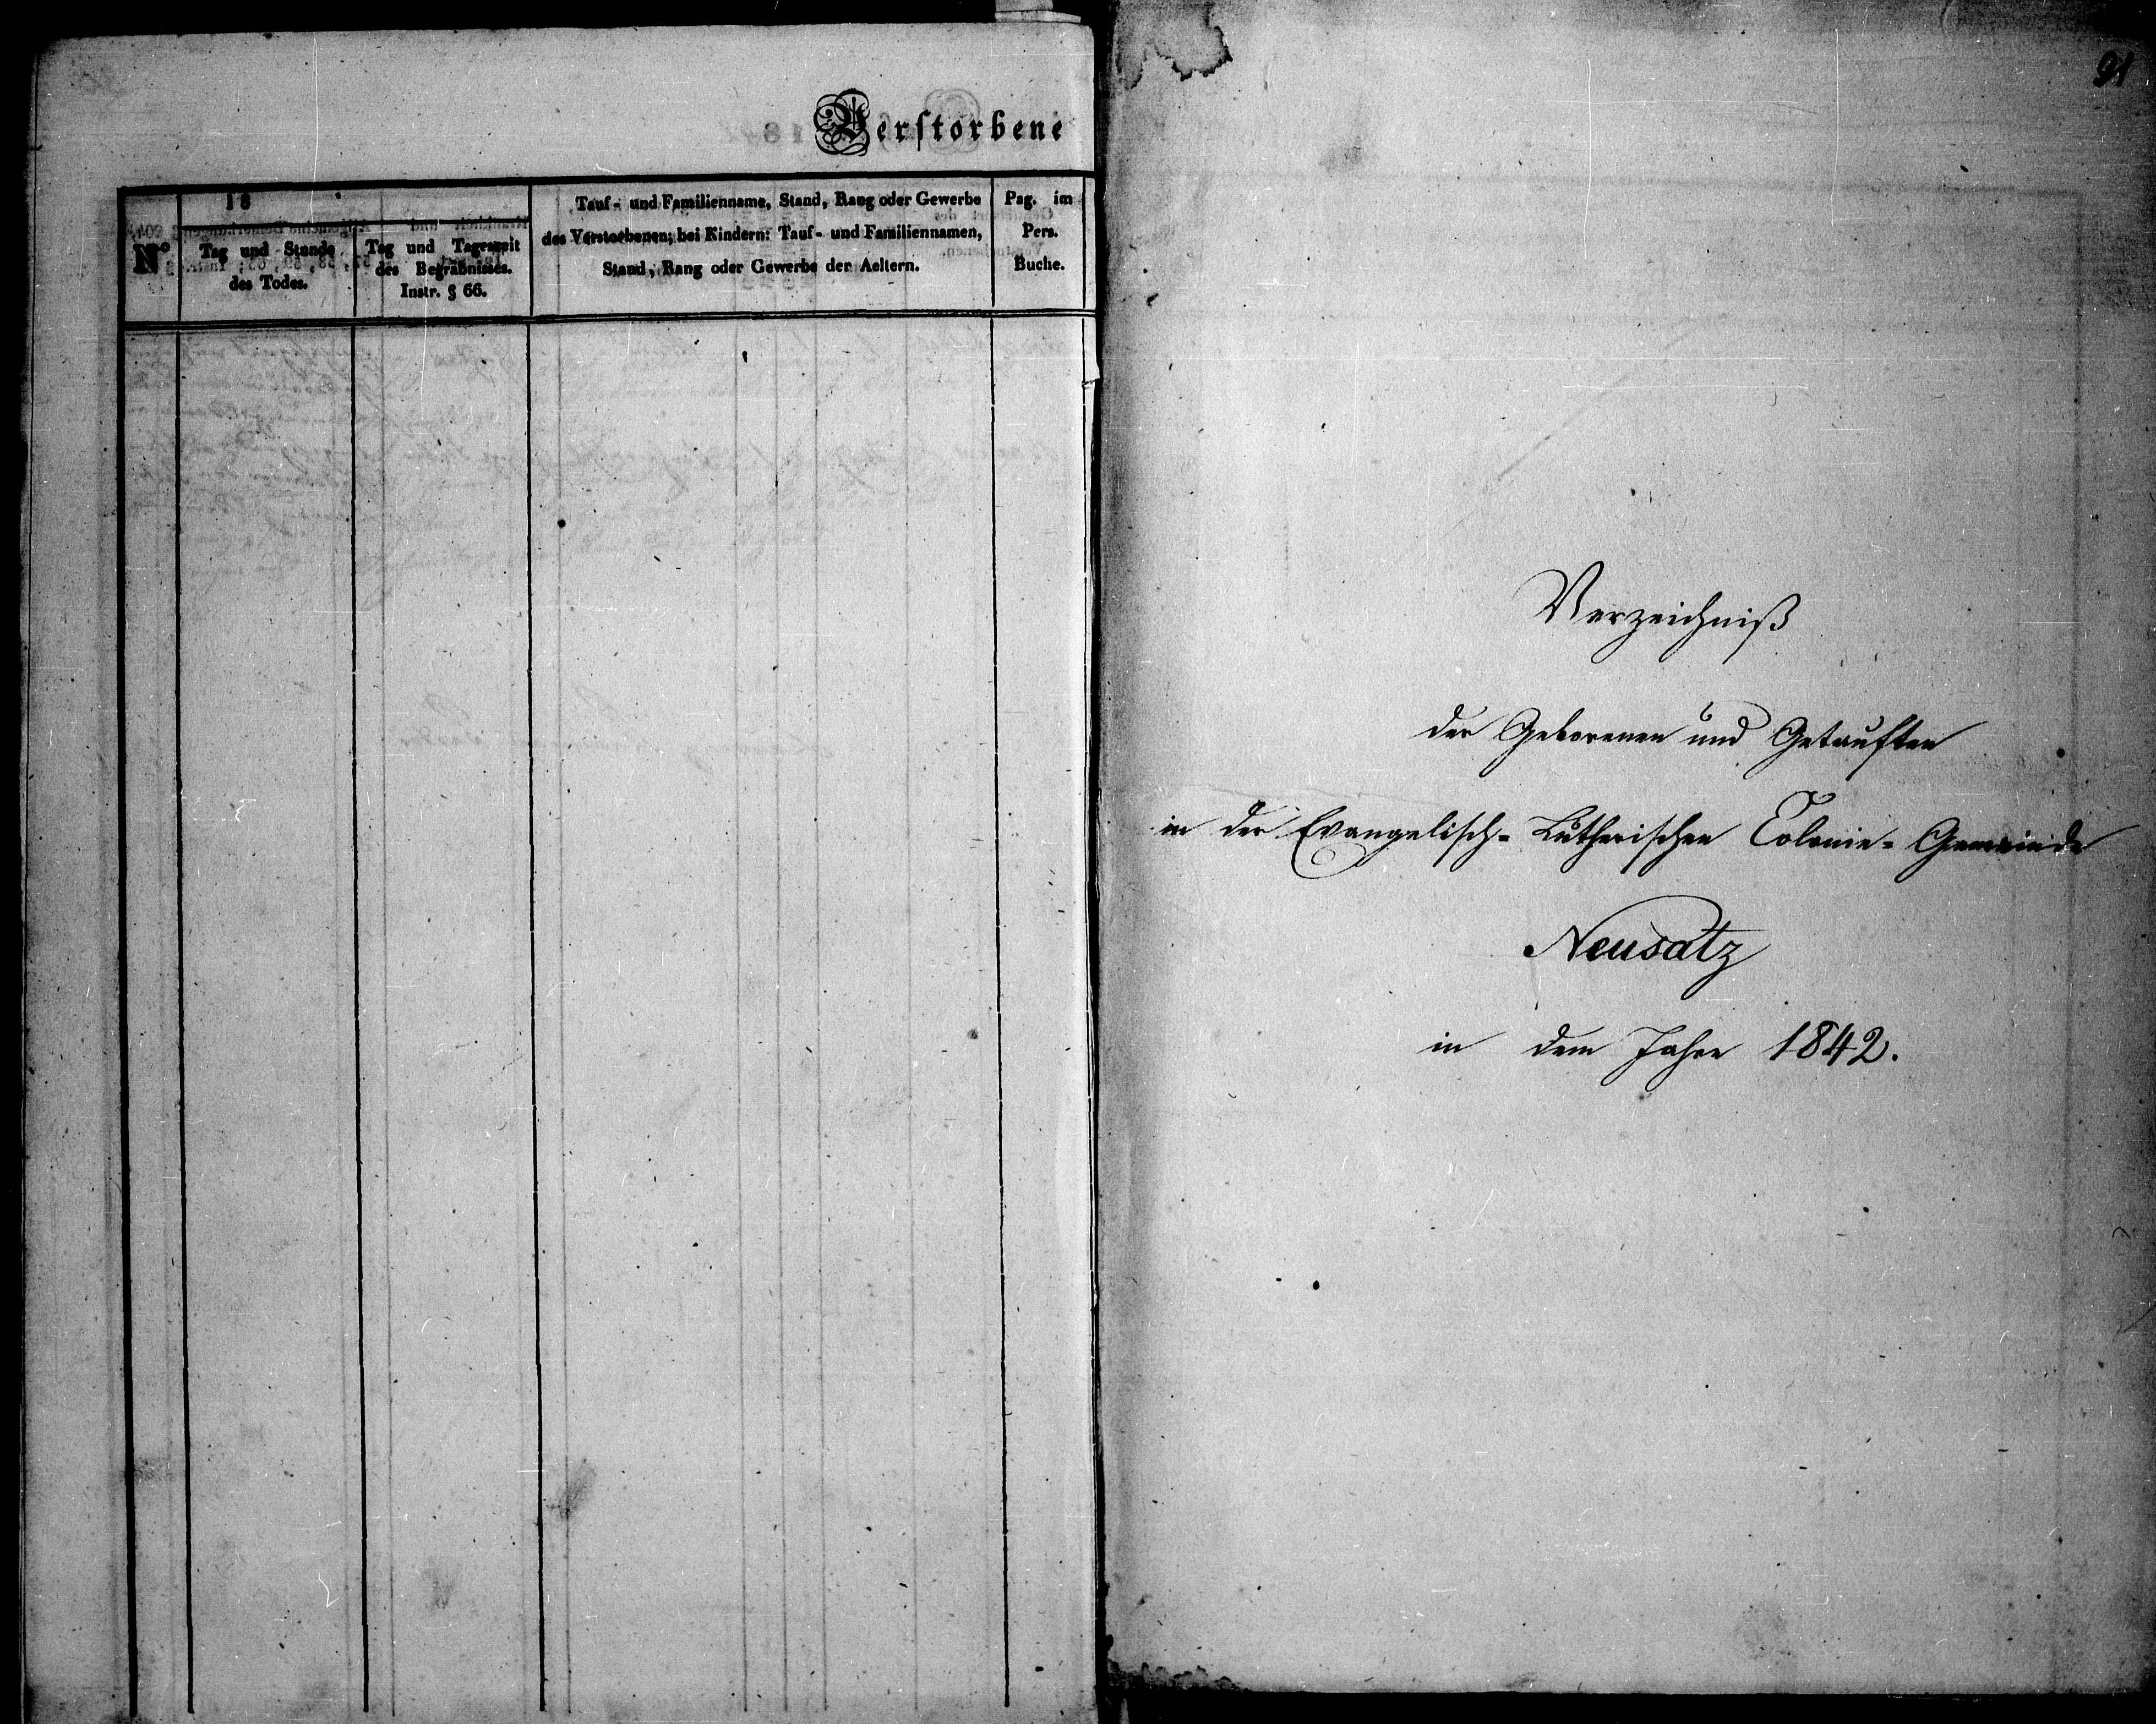 Verstorbene
18
N°
Tag und Stunde
des Todes.
Tag und Tageszeit
des Begräbnisses.
Instr. § 66.
Tauf- und Familienname, Stand, Rang oder Gewerbe
des Verstorbenen; bei Kindern: Tauf- und Familiennamen,
Stand, Rang oder Gewerbe der Aeltern.
Pag. im
Pers.
Buche.
91
Verzeichniß
der Geborenen und Getauften
in der Evangelisch-Lutherischen Colonie-Gemeinde
Neusatz
in dem Jahre 1842.